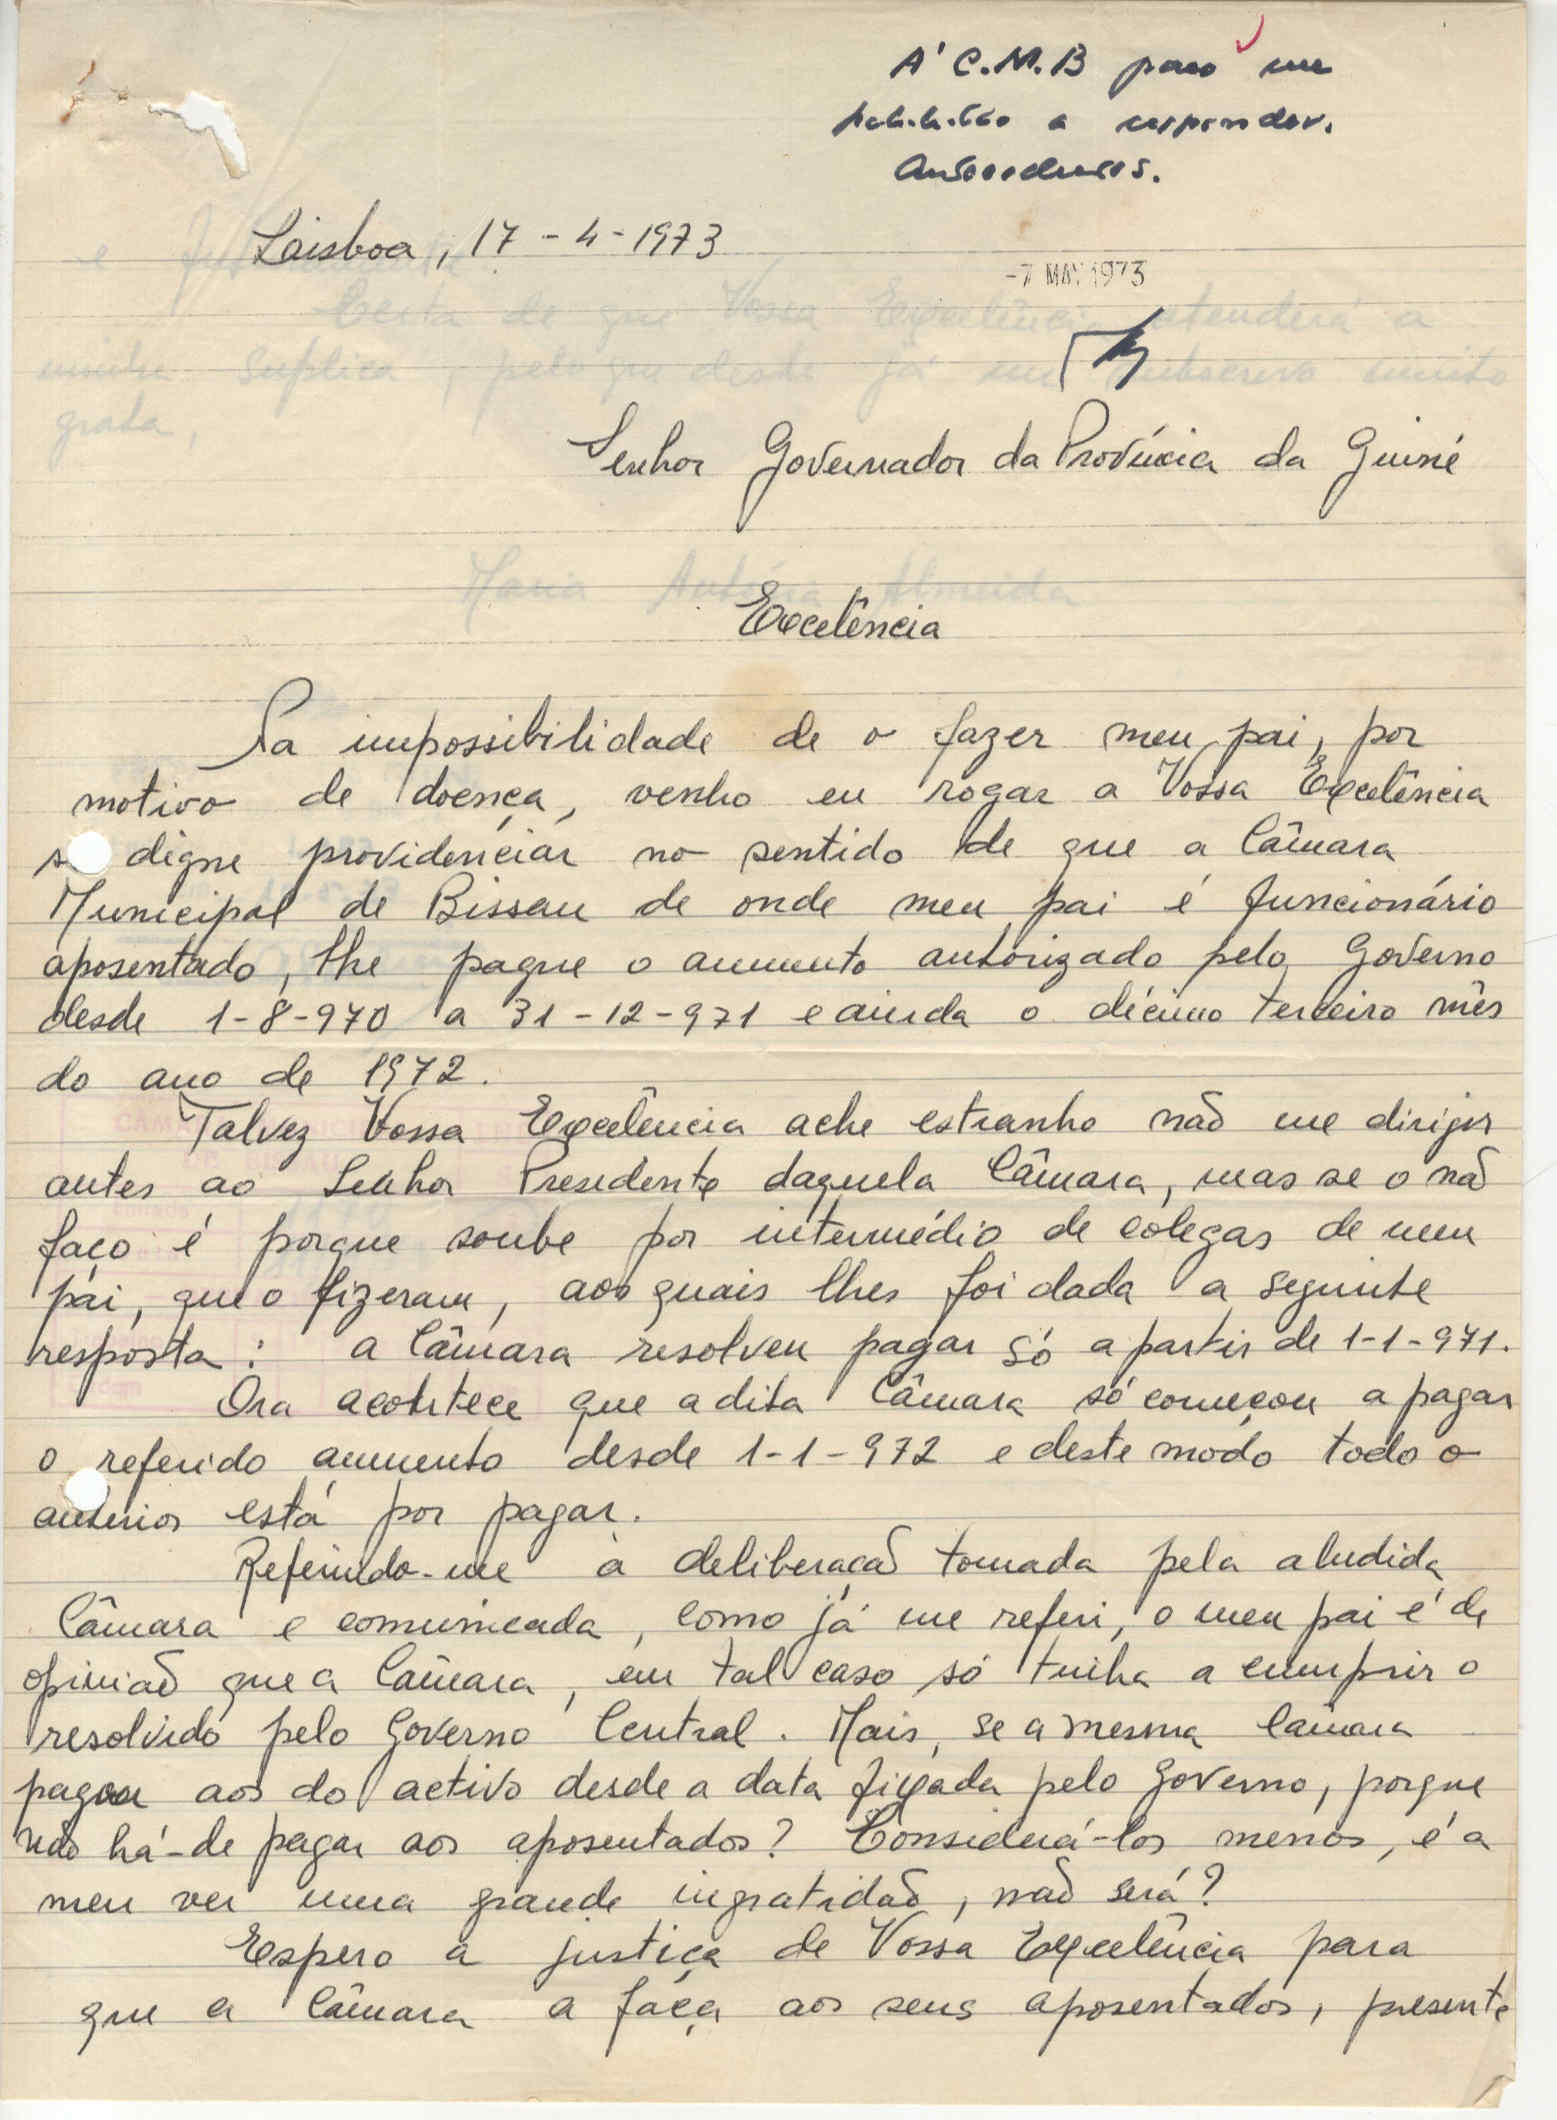 A' C.M.B para me
habilitar a responder.
Antecedentes.
Laisboa, 17-4-1973
-7 MAI 1973
Senhor Governador da Província da Guiné
Excelência
Na impossibilidade de o fazer meu pai, por
motivo de doença, venho eu rogar a Vossa Excelência
se digne providenciar no sentido de que a Câmara
Municipal de Bissau de onde meu pai é funcionário
aposentado, lhe pague o aumento autorizado pelo Governo
desde 1-8-970 a 31-12-971 e ainda o décimo terceiro mês
do ano de 1972.
Talvez Vossa Excelência ache estranho não me dirigir
antes ao Senhor Presidente daquela Câmara, mas se o não
faço é porque soube por intermédio de colegas de meu
pai, que o fizeram, aos quais lhes foi dada a seguinte
resposta: a Câmara resolveu pagar só a partir de 1-1-971.
Ora acontece que a dita Câmara só começou a pagar
o referido aumento desde 1-1-972 e deste modo todo o
anterior está por pagar.
Referindo-me à deliberação tomada pela aludida
Câmara e comunicada, como já me referi, o meu pai é de
opinião que a Câmara, em tal caso só tinha a cumprir o
resolvido pelo Governo Central. Mais, se a mesma Câmara
pagou aos do activo desde a data fixada pelo Governo, porque
não há-de pagar aos aposentados? Considerá-los menos, é a
meu ver uma grande ingratidão, não será?
Espero a justiça de Vossa Excelência para
que a Câmara a faça aos seus aposentados, presente
e
Certa de que Vossa Excelência atenderá a
minha suplica, pelo que desde já me subscrevo muito
grata,
Maria Antónia Almeida